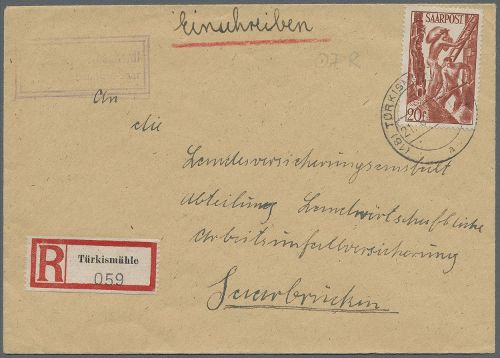 Einschreiben
SAARPOST
20F
(18) TÜRKIS
21.
a
An
die
Landesversicherungsanstalt
Abteilung Landwirtschaftliche
Arbeitsunfallversicherung
Saarbrücken
R Türkismühle
059